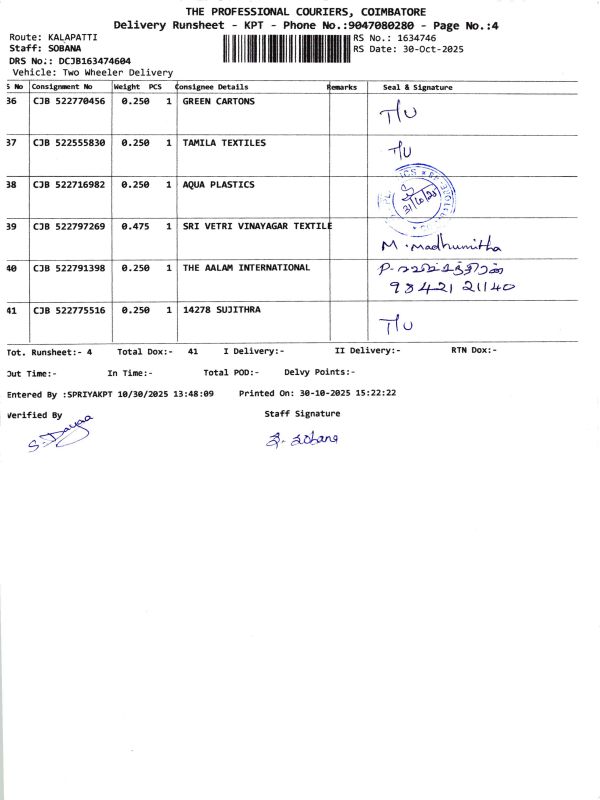 THE PROFESSIONAL COURIERS, COIMBATORE
Delivery Runsheet - KPT - Phone No.:9047080280 - Page No.:4
Route: KALAPATTI RS No.: 1634746
Staff: SOBANA RS Date: 30-Oct-2025
DRS No.: DCJB163474604
Vehicle: Two Wheeler Delivery
S No Consignment No Weight PCS Consignee Details Remarks Seal & Signature
36 CJB 522770456 0.250 1 GREEN CARTONS T/U
37 CJB 522555830 0.250 1 TAMILA TEXTILES T/U
38 CJB 522716982 0.250 1 AQUA PLASTICS
39 CJB 522797269 0.475 1 SRI VETRI VINAYAGAR TEXTILE M. Madhumitha
40 CJB 522791398 0.250 1 THE AALAM INTERNATIONAL
98421 21140
41 CJB 522775516 0.250 1 14278 SUJITHRA T/U
Tot. Runsheet:- 4 Total Dox:- 41 I Delivery:- II Delivery:- RTN Dox:-
Out Time:- In Time:- Total POD:- Delvy Points:-
Entered By :SPRIYAKPT 10/30/2025 13:48:09 Printed On: 30-10-2025 15:22:22
Verified By Staff Signature